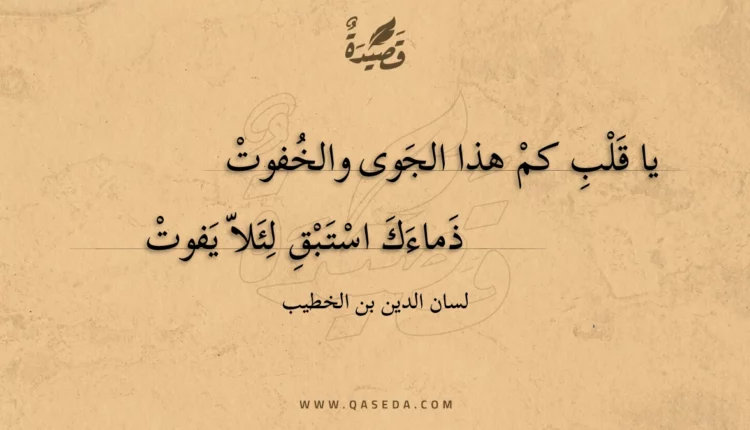 قَصِيْدَةٌ
يا قَلْبِ كمْ هذا الجَوى والخُفوتْ
ذَماءَكَ اسْتَبْقِ لِئَلاّ يَفوتْ
لسان الدين بن الخطيب
WWW.QASEDA.COM